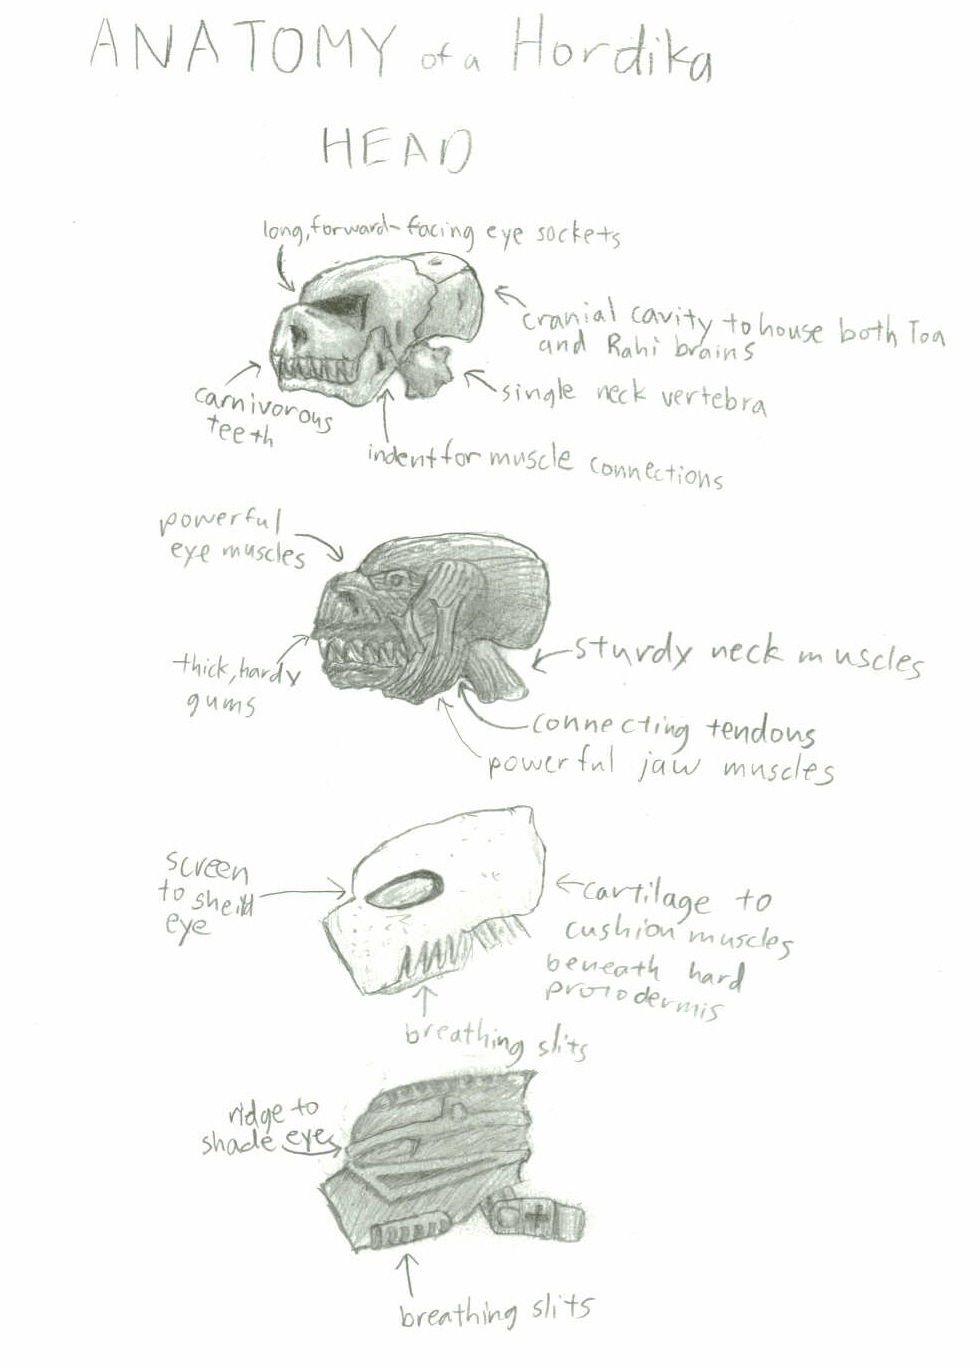 ANATOMY of a Hordika
HEAD
long, forward-facing eye sockets
cranial cavity to house both Toa
and Rahi brains
single neck vertebra
carnivorous
teeth
indent for muscle connections
powerful
eye muscles
thick, hardy
gums
sturdy neck muscles
connecting tendons
powerful jaw muscles
screen
to sheild
eye
cartilage to
cushion muscles
beneath hard
protodermis
breathing slits
ridge to
shade eyes
breathing slits